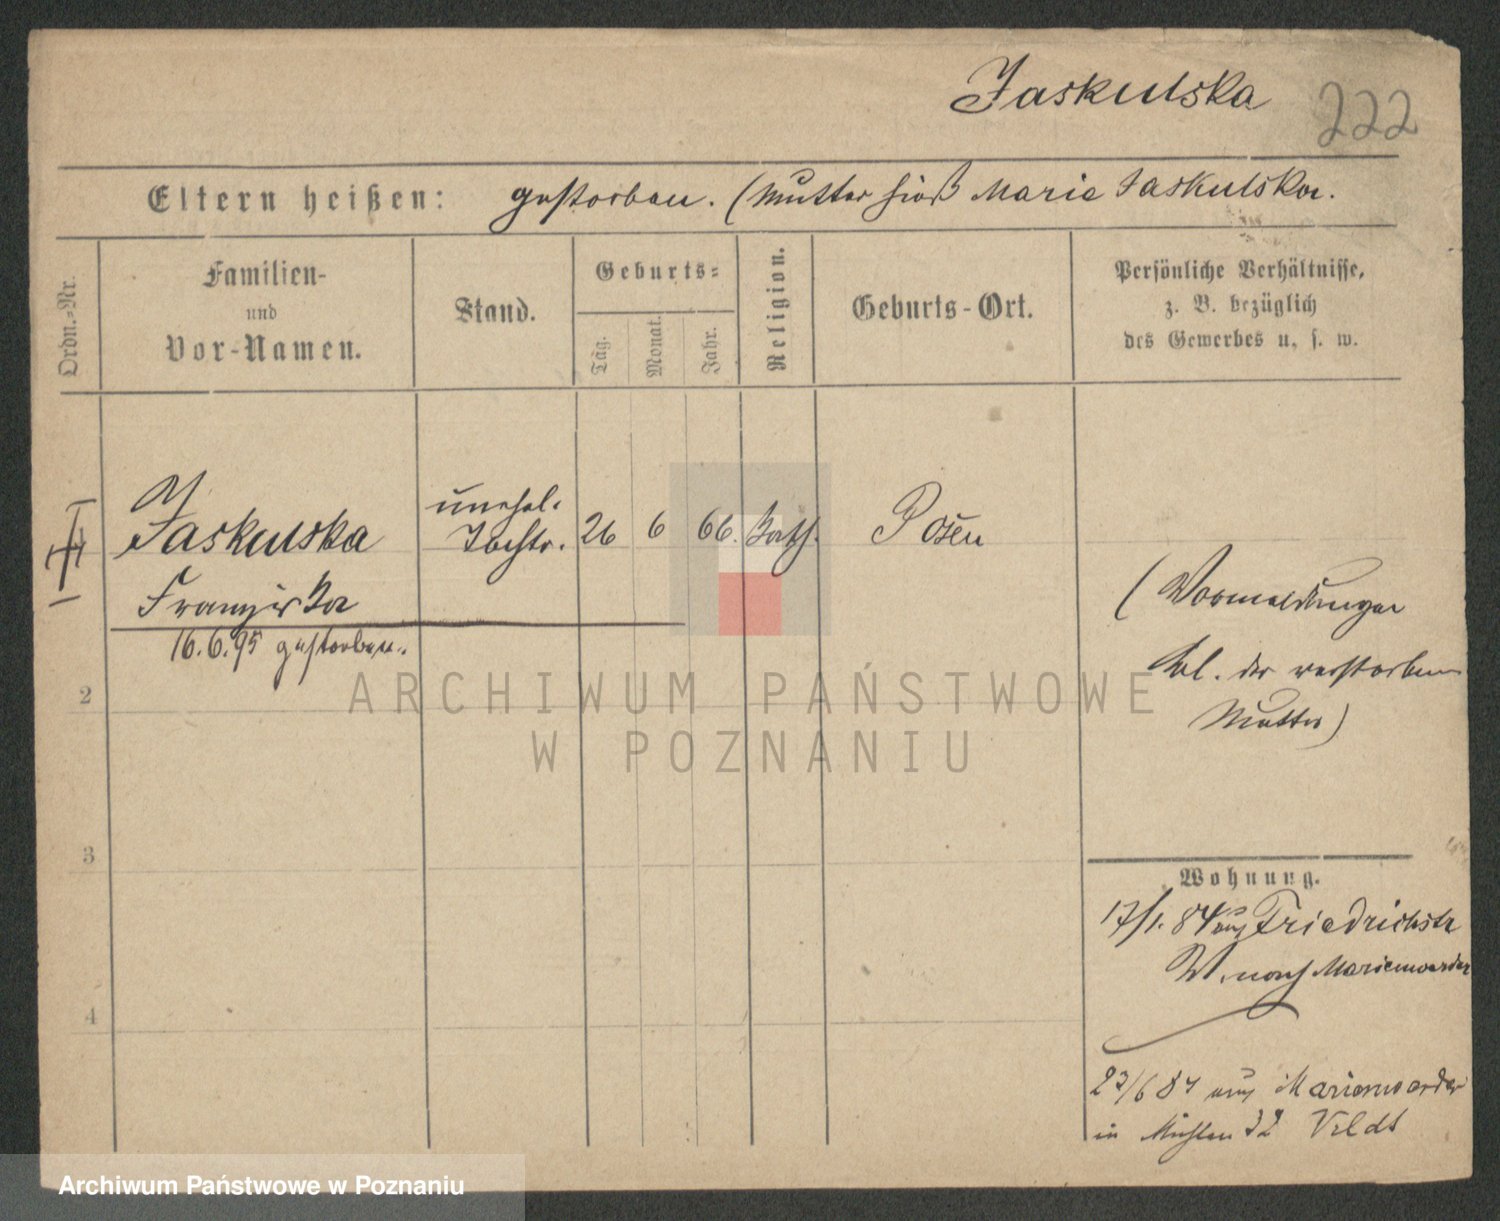 Jaskulska
222
Eltern heißen: gestorben. (Mutter hieß Maria Jaskulska.
Ordn.-Nr.
Familien-
und
Vor-Namen.
Stand.
Geburts-
Tag.
Monat.
Jahr.
Religion.
Geburts-Ort.
Persönliche Verhältnisse,
z. B. bezüglich
des Gewerbes u. s. w.
Jaskulska
Franziska
unehel.
Tochtr.
26
6
66.
kath.
Posen
16. 6. 95 gestorben.
(Vormeldungen
bl. der verstorbenen
Mutter)
2
3
4
Wohnung.
17/1. 84 aus Friedrichstr
W. nach Marienwerder
23/6 84 aus Marienwerder
in Mühlen 32 Veldt
ARCHIWUM PAŃSTWOWE
W POZNANIU
Archiwum Państwowe w Poznaniu